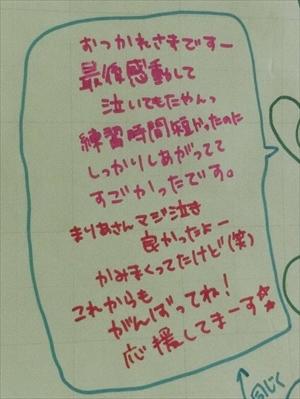 おつかれさまですー
最後感動して
泣いてもたやんっ
練習時間短かったのに
しっかりしあがってて
すごかったです。
まりあさんマジ泣き
良かったよー
かみまくってたけど(笑)
これからも
がんばってね!
応援してまーす☆
同じく